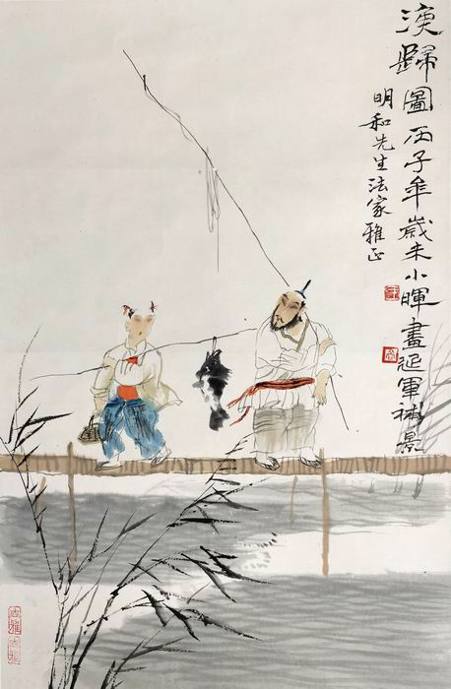 渔歸圖 丙子年歲末小暉畫延軍補景
明和先生法家雅正